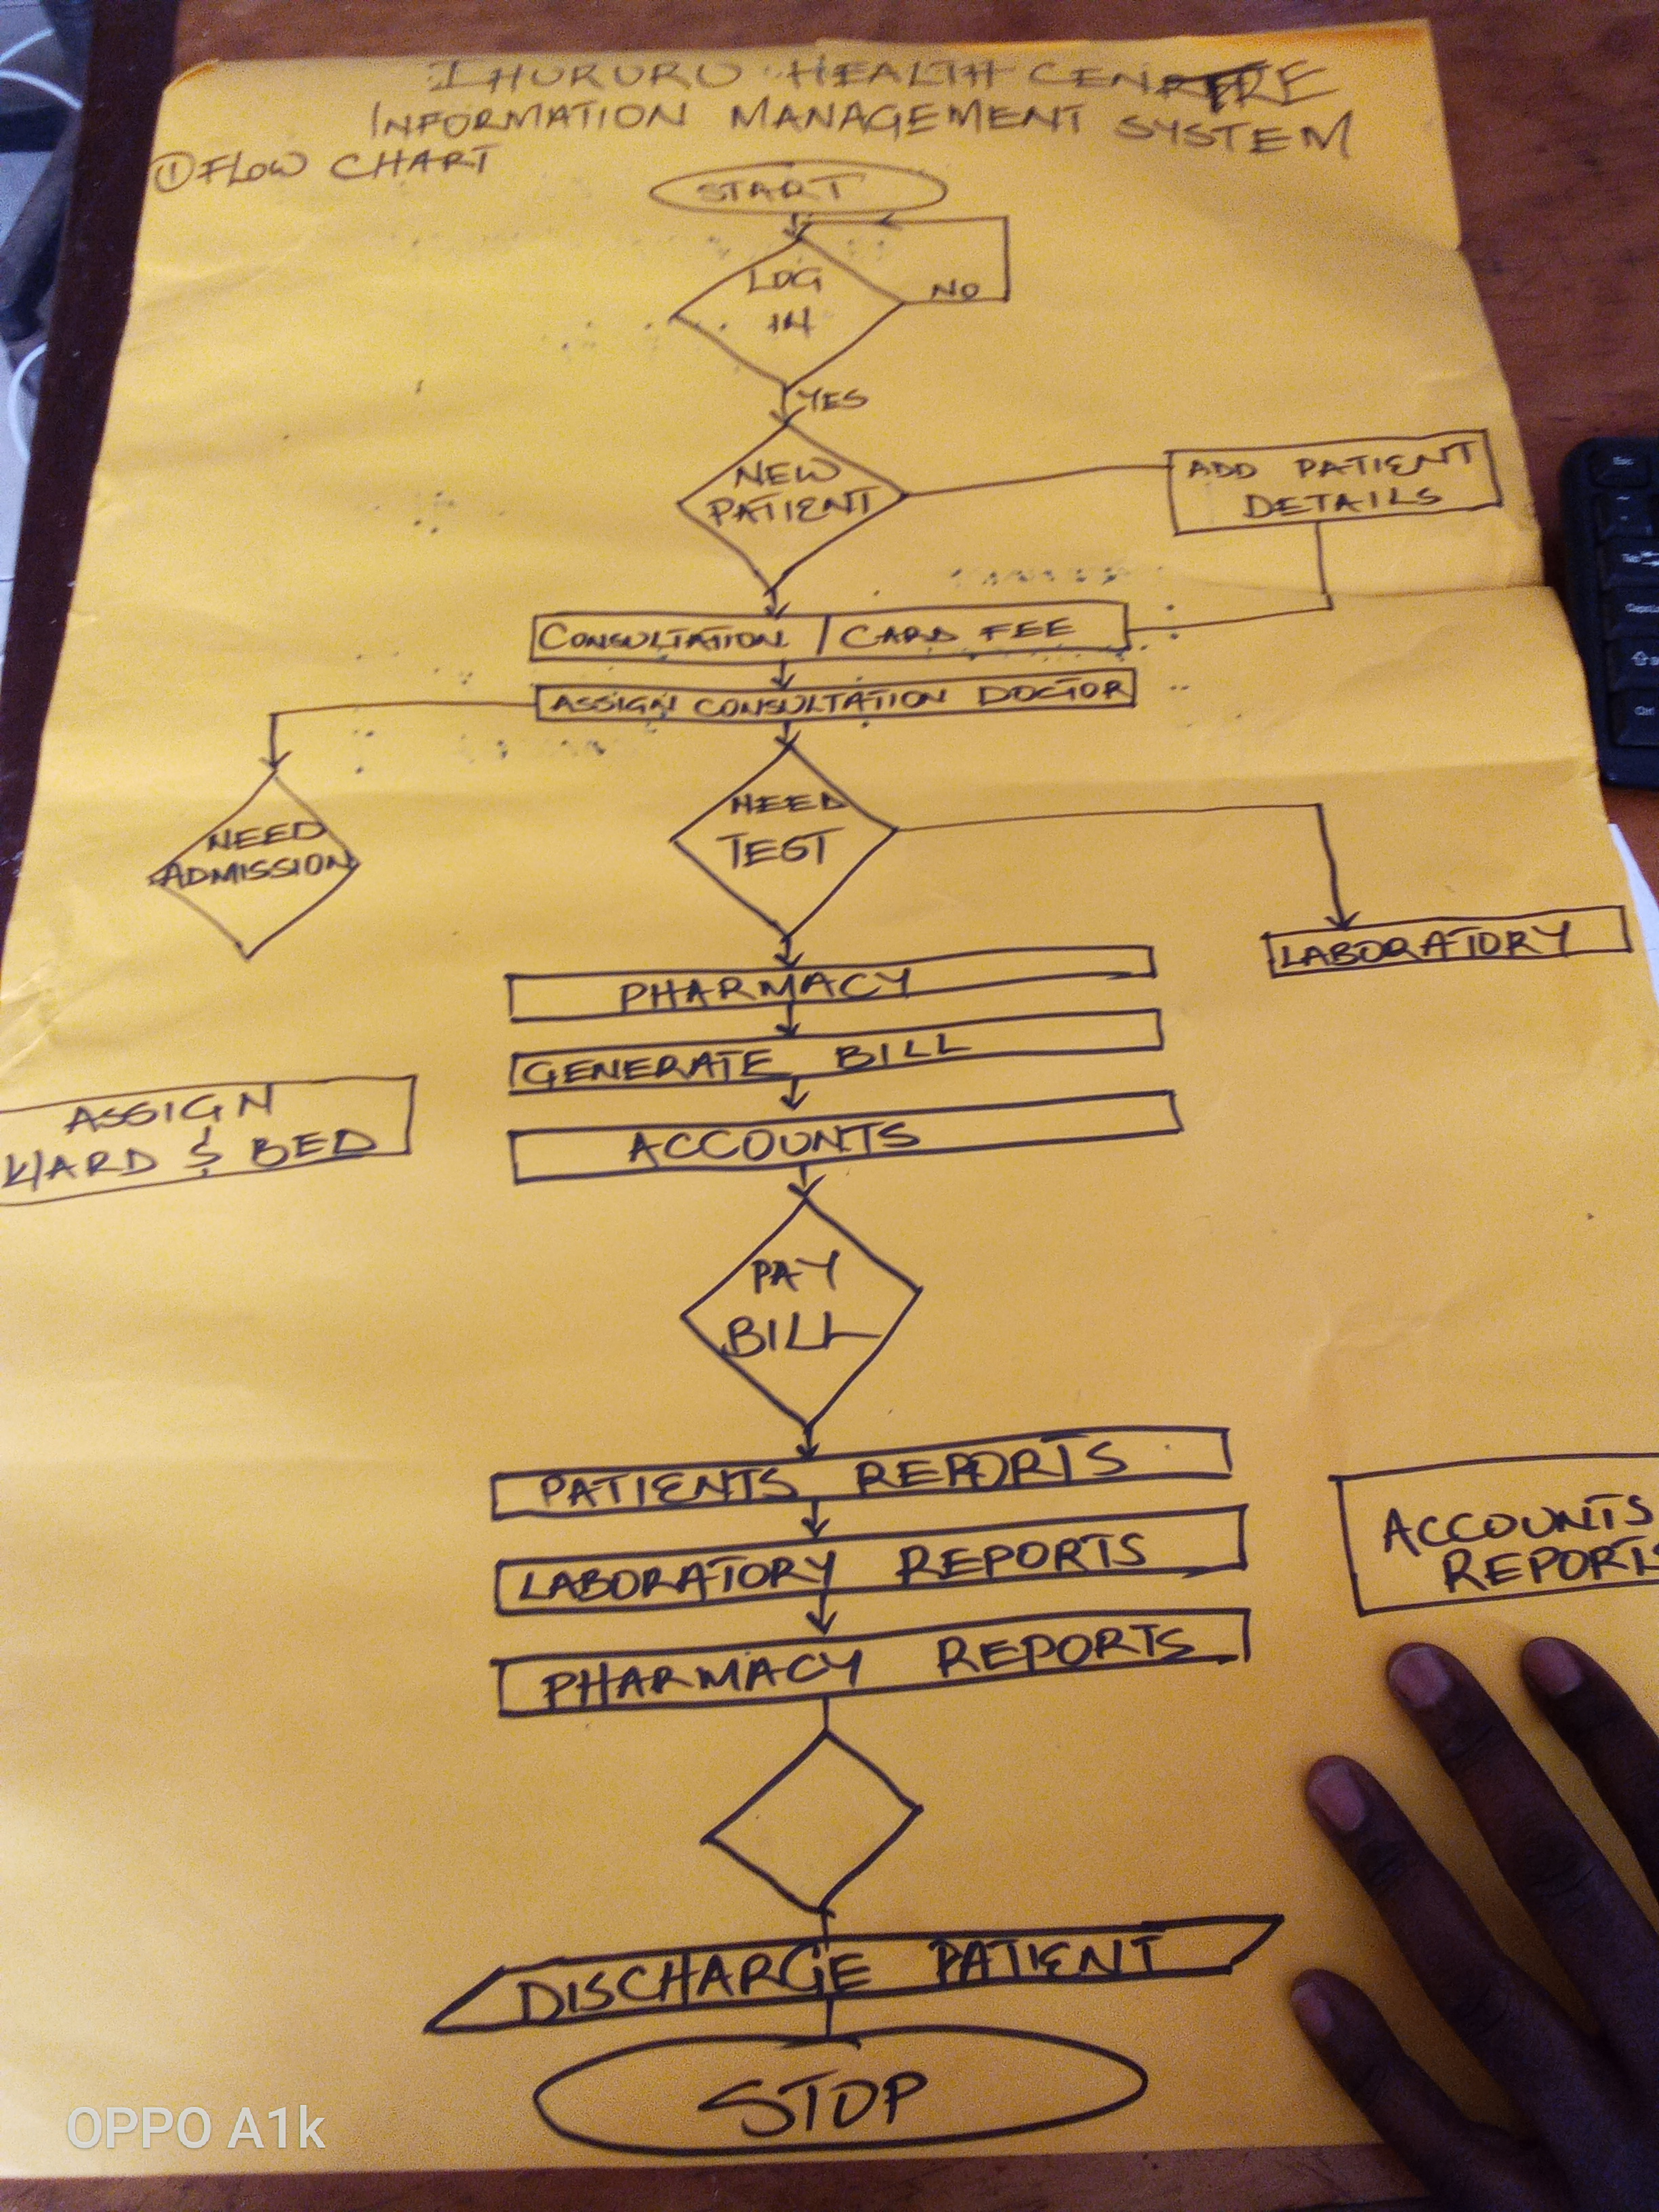 IHURURU HEALTH CENTRE
INFORMATION MANAGEMENT SYSTEM
① FLOW CHART
START
LOG
IN
NO
YES
NEW
PATIENT
ADD PATIENT
DETAILS
CONSULTATION / CARD FEE
ASSIGN CONSULTATION DOCTOR
NEED
ADMISSION
NEED
TEST
LABORATORY
PHARMACY
GENERATE BILL
ASSIGN
WARD & BED
ACCOUNTS
PAY
BILL
PATIENTS REPORTS
ACCOUNTS
REPORTS
LABORATORY REPORTS
PHARMACY REPORTS
DISCHARGE PATIENT
STOP
OPPO A1k